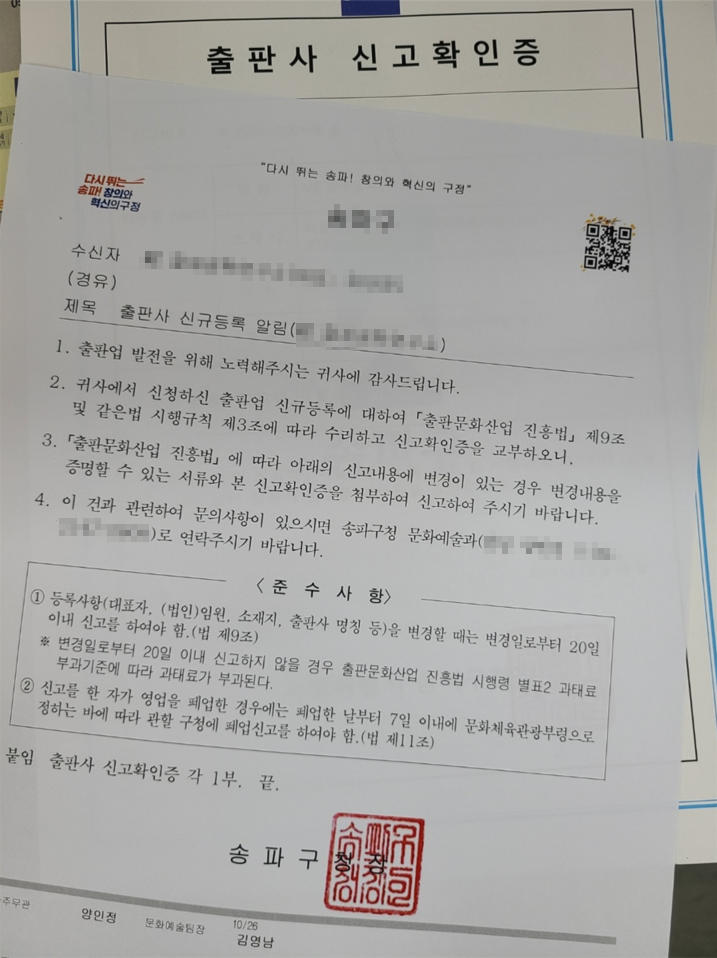 출판사 신고확인증
"다시 뛰는 송파! 창의와 혁신의 구정"
다시 뛰는
송파! 창의와
혁신의구정
송파구
수신자
(경유)
제목 출판사 신규등록 알림( )
1. 출판업 발전을 위해 노력해주시는 귀사에 감사드립니다.
2. 귀사에서 신청하신 출판업 신규등록에 대하여 「출판문화산업 진흥법」 제9조
및 같은법 시행규칙 제3조에 따라 수리하고 신고확인증을 교부하오니.
3. 「출판문화산업 진흥법」에 따라 아래의 신고내용에 변경이 있는 경우 변경내용을
증명할 수 있는 서류와 본 신고확인증을 첨부하여 신고하여 주시기 바랍니다.
4. 이 건과 관련하여 문의사항이 있으시면 송파구청 문화예술과(
)로 연락주시기 바랍니다.
〈준수사항〉
① 등록사항(대표자, (법인)임원, 소재지, 출판사 명칭 등)을 변경할 때는 변경일로부터 20일
이내 신고를 하여야 함.(법 제9조)
※ 변경일로부터 20일 이내 신고하지 않을 경우 출판문화산업 진흥법 시행령 별표2 과태료
부과기준에 따라 과태료가 부과된다.
② 신고를 한 자가 영업을 폐업한 경우에는 폐업한 날부터 7일 이내에 문화체육관광부령으로
정하는 바에 따라 관할 구청에 폐업신고를 하여야 함.(법 제11조)
붙임 출판사 신고확인증 각 1부. 끝.
송파구청장
주무관 양인정 문화예술팀장 10/26
김영남